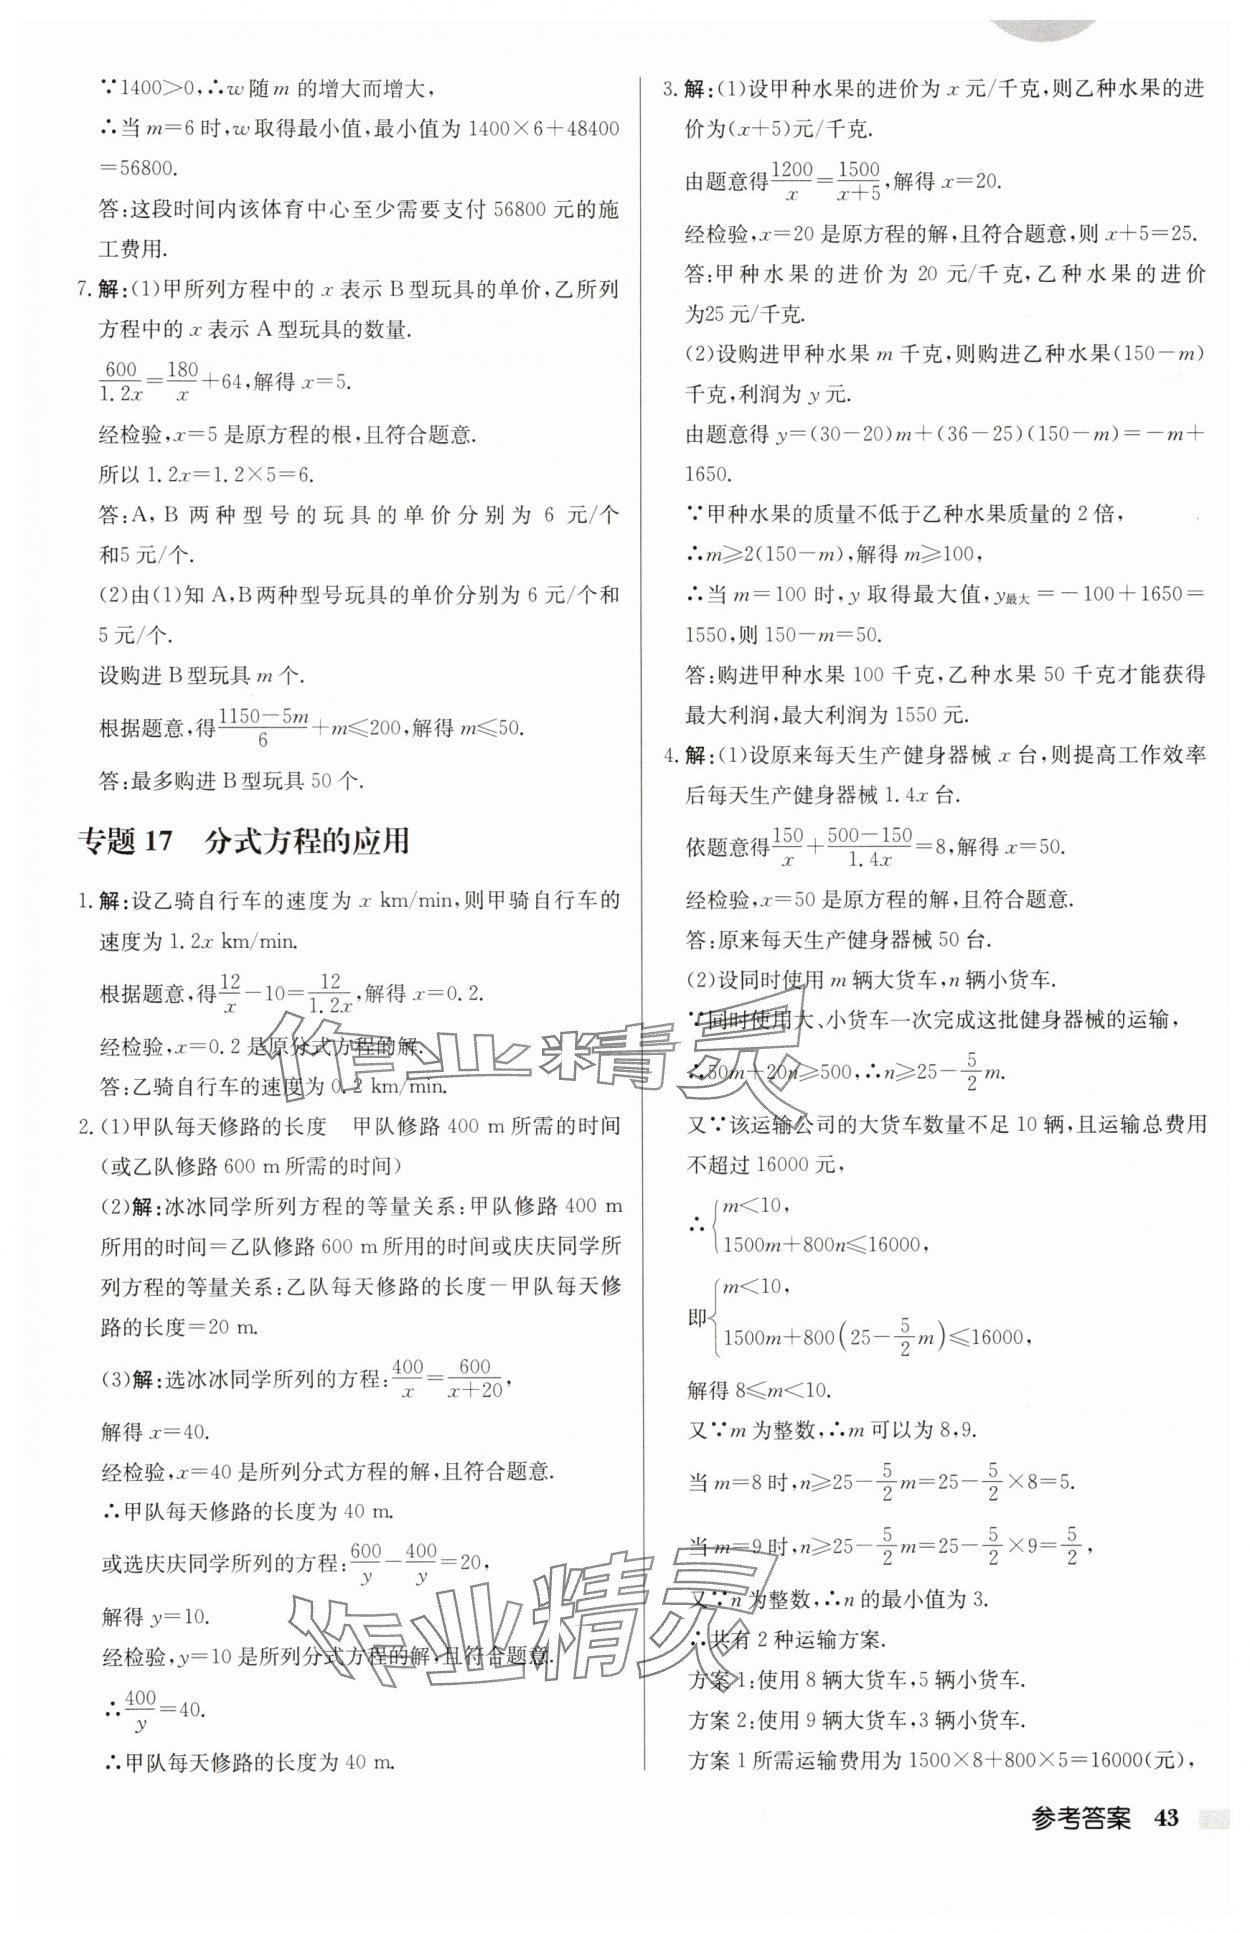 ∵1400>0,∴w随m的增大而增大,
∴当m=6时,w取得最小值,最小值为1400×6+48400
=56800.
答:这段时间内该体育中心至少需要支付56800元的施
工费用.
7.解:(1)甲所列方程中的x表示B型玩具的单价,乙所列
方程中的x表示A型玩具的数量.
600/1.2x=180/x+64,解得x=5.
经检验,x=5是原方程的根,且符合题意.
所以1.2x=1.2×5=6.
答:A,B两种型号的玩具的单价分别为6元/个
和5元/个.
(2)由(1)知A,B两种型号玩具的单价分别为6元/个和
5元/个.
设购进B型玩具m个.
根据题意,得(1150-5m)/6+m≤200,解得m≤50.
答:最多购进B型玩具50个.
专题17 分式方程的应用
1.解:设乙骑自行车的速度为x km/min,则甲骑自行车的
速度为1.2x km/min.
根据题意,得12/x-10=12/1.2x,解得x=0.2.
经检验,x=0.2是原分式方程的解.
答:乙骑自行车的速度为0.2 km/min.
2.(1)甲队每天修路的长度 甲队修路400 m所需的时间
(或乙队修路600 m所需的时间)
(2)解:冰冰同学所列方程的等量关系:甲队修路400 m
所用的时间=乙队修路600 m所用的时间或庆庆同学所
列方程的等量关系:乙队每天修路的长度-甲队每天修
路的长度=20 m.
(3)解:选冰冰同学所列的方程:400/x=600/(x+20),
解得x=40.
经检验,x=40是所列分式方程的解,且符合题意.
∴甲队每天修路的长度为40 m.
或选庆庆同学所列的方程:600/y-400/y=20,
解得y=10.
经检验,y=10是所列分式方程的解,且符合题意.
∴400/y=40.
∴甲队每天修路的长度为40 m.
3.解:(1)设甲种水果的进价为x元/千克,则乙种水果的进
价为(x+5)元/千克.
由题意得1200/x=1500/(x+5),解得x=20.
经检验,x=20是原方程的解,且符合题意,则x+5=25.
答:甲种水果的进价为20元/千克,乙种水果的进价
为25元/千克.
(2)设购进甲种水果m千克,则购进乙种水果(150-m)
千克,利润为y元.
由题意得y=(30-20)m+(36-25)(150-m)=-m+
1650.
∵甲种水果的质量不低于乙种水果质量的2倍,
∴m≥2(150-m),解得m≥100,
∴当m=100时,y取得最大值,y最大=-100+1650=
1550,则150-m=50.
答:购进甲种水果100千克,乙种水果50千克才能获得
最大利润,最大利润为1550元.
4.解:(1)设原来每天生产健身器械x台,则提高工作效率
后每天生产健身器械1.4x台.
依题意得150/x+(500-150)/1.4x=8,解得x=50.
经检验,x=50是原方程的解,且符合题意.
答:原来每天生产健身器械50台.
(2)设同时使用m辆大货车,n辆小货车.
∵同时使用大、小货车一次完成这批健身器械的运输,
∴50m+20n≥500,∴n≥25-5/2m.
又∵该运输公司的大货车数量不足10辆,且运输总费用
不超过16000元,
∴{m<10,
1500m+800n≤16000,
即{m<10,
1500m+800(25-5/2m)≤16000,
解得8≤m<10.
又∵m为整数,∴m可以为8,9.
当m=8时,n≥25-5/2m=25-5/2×8=5.
当m=9时,n≥25-5/2m=25-5/2×9=5/2,
又∵n为整数,∴n的最小值为3.
∴共有2种运输方案.
方案1:使用8辆大货车,5辆小货车.
方案2:使用9辆大货车,3辆小货车.
方案1所需运输费用为1500×8+800×5=16000(元),
参考答案 43
作业精灵
作业精灵